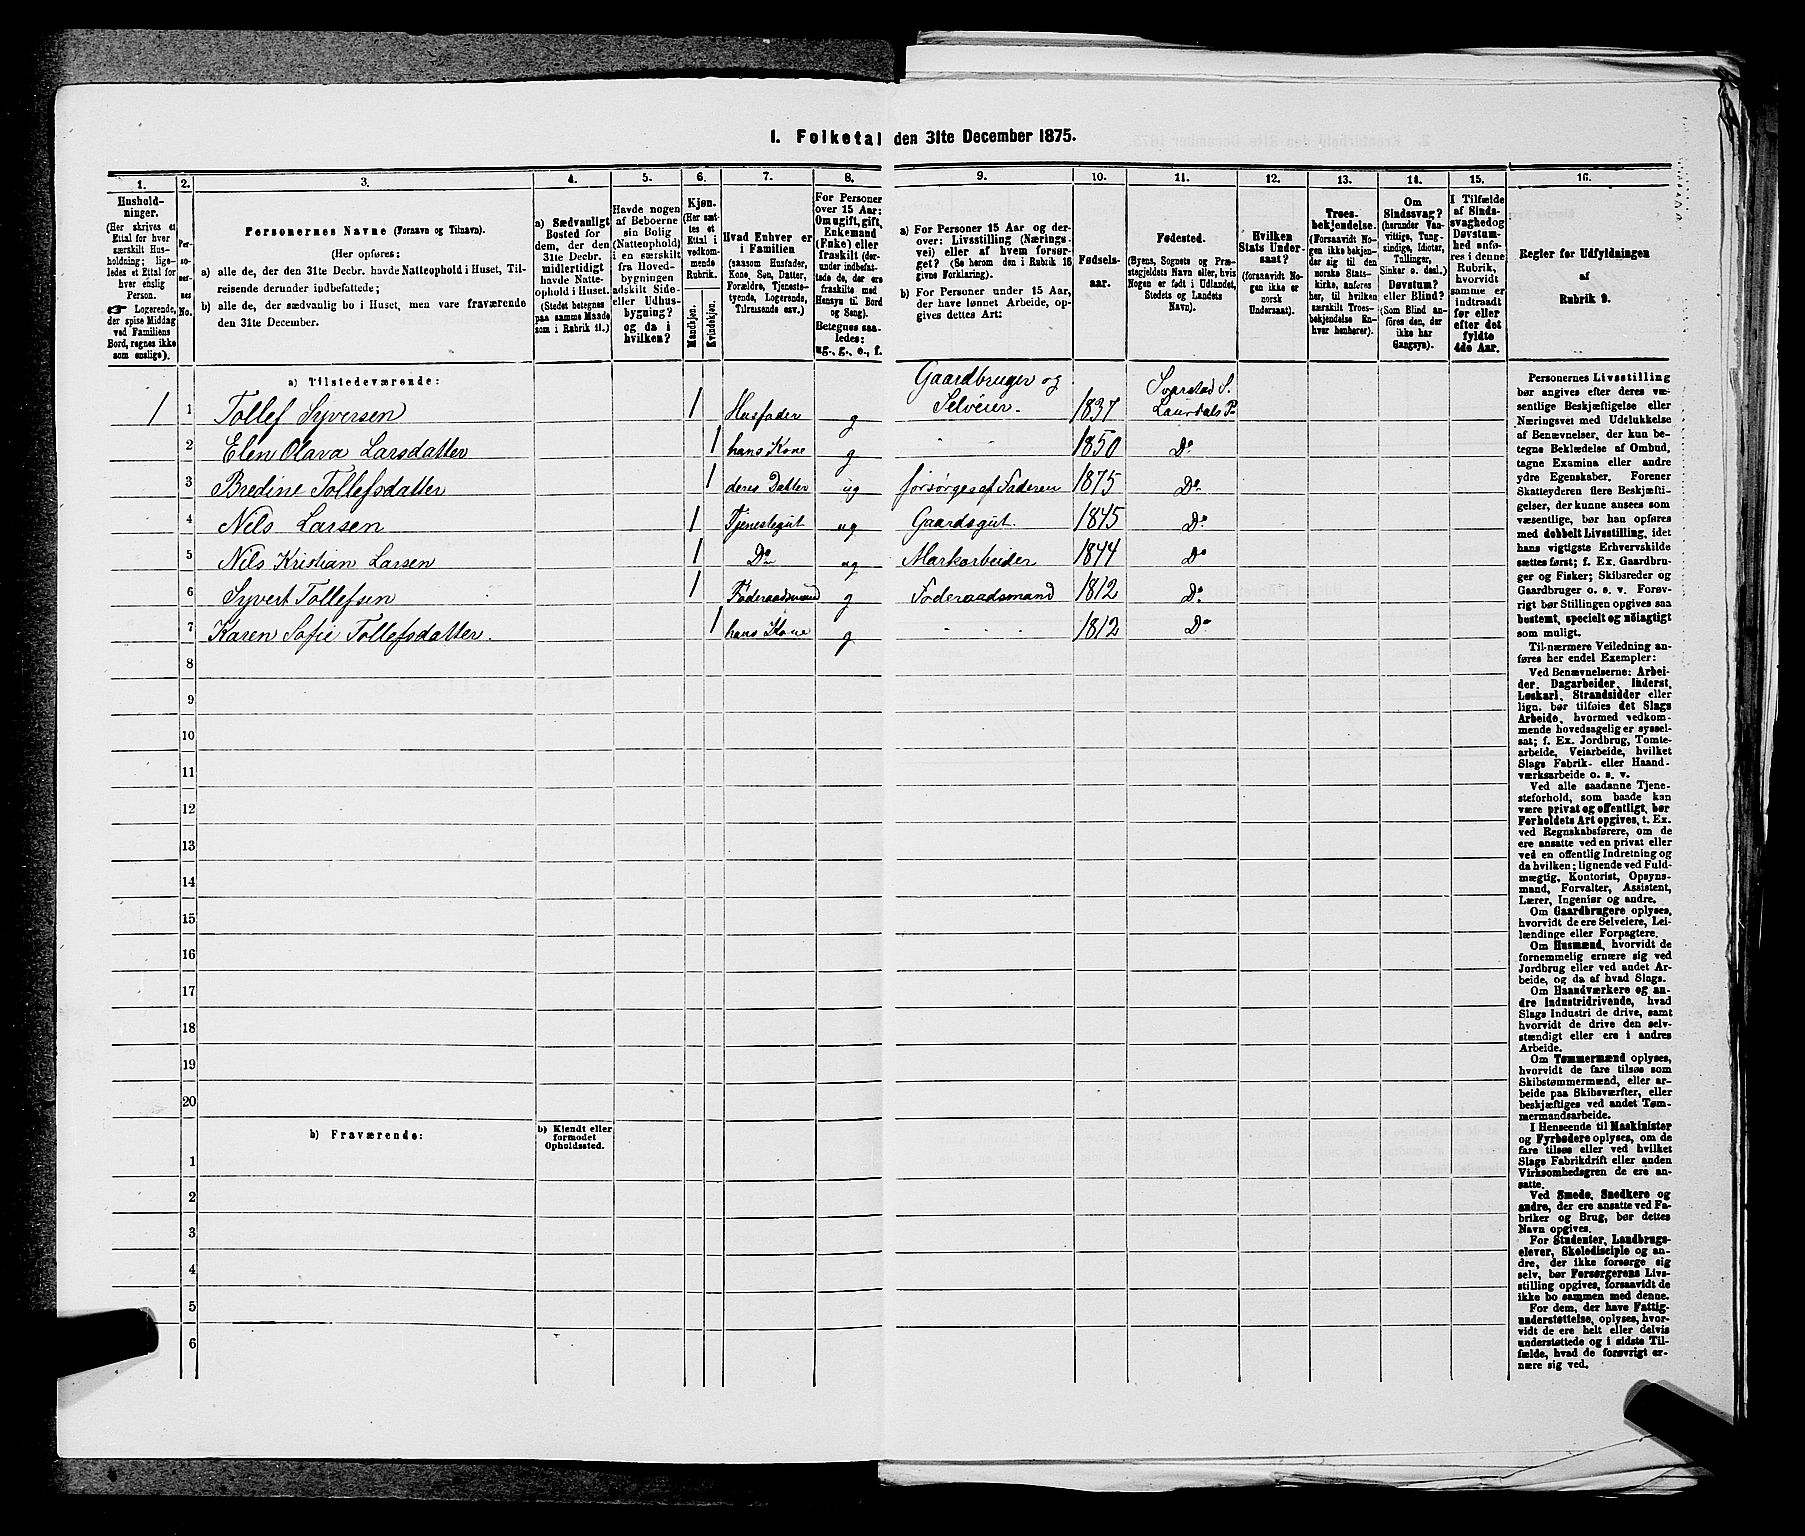 1. Folketal den 31te December 1875.
1. 2. 3. 4. 5. 6. 7. 8. 9. 10. 11. 12. 13. 14. 15. 16.
Hushold-
ninger.
(Her skrives et
Ettal for hver
særskilt Hus-
holdning; lige-
ledes et Ettal for
hver enslig
Person.
☛ Logerende,
der spise Middag
ved Familiens
Bord, regnes ikke
som enslige).
Per-
so-
ner-
nes
No.
Personernes Navne (Fornavn og Tilnavn).
(Her opføres:
a) alle de, der den 31te Decbr. havde Natteophold i Huset, Til-
reisende derunder indbefattede;
b) alle de, der sædvanlig bo i Huset, men vare fraværende
den 31te December.
a) Sædvanligt
Bosted for
dem, der den
31te Decbr.
midlertidigt
havde Natte-
ophold i Huset.
(Stedet betegnes
paa samme Maade
som i Rubrik 11.)
Havde nogen
af Beboerne
sin Bolig
(Natteophold)
i en særskilt
fra Hoved-
bygningen
adskilt Side-
eller Udhus-
bygning?
og da i
hvilken?
Kjøn.
(Her sæt-
tes et
Ettal i
vedkom-
mende
Rubrik.
Mandkjøn.
Kvindekjøn.
Hvad Enhver er
i Familien
(saasom Husfader,
Kone, Søn, Datter,
Forældre, Tjeneste-
tyende, Logerende,
Tilreisende osv.)
For Personer
over 15 Aar:
Om ugift, gift,
Enkemand
(Enke) eller
fraskilt (der-
under indbefat-
tede de, der ere
fraskilte med
Hensyn til Bord
og Seng).
Betegnes saa-
ledes:
ug., g., e., f.
a) For Personer 15 Aar og der-
over: Livsstilling (Nærings-
vei) eller af hvem forsør-
get? (Se herom den i Rubrik 16
givne Forklaring).
b) For Personer under 15 Aar,
der have lønnet Arbeide, op-
gives dettes Art:
Fødsels-
aar.
Fødested.
(Byens, Sognets og Præ-
stegjeldets Navn eller, hvis
Nogen er født i Udlandet,
Stedets og Landets
Navn).
Hvilken
Stats Under-
saat?
(forsaavidt No-
gen ikke er
norsk
Undersaat).
Troes-
bekjendelse.
(Forsaavidt No-
gen ikke bekjen-
der sig til den
norske Stats-
kirke, anføres
her, til hvilken
særskilt Troes-
bekjendelse En-
hver henhører).
Om
Sindssvag?
(herunder Van-
vittige, Tung-
sindige, Idioter,
Tullinger,
Sinker o. desl.)
Døvstum?
eller Blind?
(Som Blind an-
føres den, der
ikke har
Gangsyn).
I Tilfælde
af Sinds-
svaghed og
Døvstum-
hed anfø-
res i denne
Rubrik,
hvorvidt
samme er
indtraadt
før eller
efter det
fyldte
4de Aar.
Regler for Udfyldningen
af
Rubrik 9.
a) Tilstedeværende:
1 1 Tollef Syversen 1 Husfader g Gaardbruger og Selveier. 1837 Svarstad S. Laurdals P
2 Elen Olava Larsdatter 1 hans Kone g " " 1850 Do
3 Bredine Tollefsdatter 1 deres Datter ug forsørges af Faderen 1875 Do
4 Nils Larsen 1 Tjenestegut ug Gaardsgut. 1845 Do
5 Nils Kristian Larsen 1 Do ug Markarbeider 1844 Do
6 Syvert Tollefsen 1 Føderaadsmand g Føderaadsmand 1812 Do
7 Karen Sofie Tollefsdatter. 1 hans Kone g " " 1812 Do
8
9
10
11
12
13
14
15
16
17
18
19
20
b) Fraværende:
b) Kjendt eller
formodet
Opholdssted.
1
2
3
4
5
6
Personernes Livsstilling
bør angives efter deres væ-
sentlige Beskjæftigelse eller
Næringsvei med Udelukkelse
af Benævnelser, der kun be-
tegne Beklædelse af Ombud,
tagne Examina eller andre
ydre Egenskaber. Forener
Skatteyderen flere Beskjæfti-
gelser, der kunne ansees som
væsentlige, bør han opføres
med dobbelt Livsstilling, idet
hans vigtigste Erhvervskilde
sættes først; f. Ex. Gaardbru-
ger og Fisker; Skibsreder og
Gaardbruger o. s. v. Forøv-
rigt bør Stillingen opgives saa
bestemt, specielt og nöiagtigt
som muligt.
Til nærmere Veiledning an-
føres her endel Exempler:
Ved Benævnelserne: Arbei-
der, Dagarbeider, Inderst,
Løskarl, Strandsidder eller
lign. bør tilføies det Slags
Arbeide, hvormed vedkom-
mende hovedsagelig er syssel-
sat; f. Ex. Jordbrug, Tomte-
arbeide, Veiarbeide, hvilket
Slags Fabrik- eller Haand-
værksarbeide o. s. v.
Ved alle saadanne Tjene-
steforhold, som baade kan
være privat og offentligt, bør
Forholdets Art opgives, t. Ex.
ved Regnskabsførere, om de
ere ansatte ved en privat eller
ved en offentlig Indretning og
da hvilken; lignende ved Fuld-
mægtig, Kontorist, Opsyns-
mand, Forvalter, Assistent,
Lærer, Ingeniør og andre.
Om Gaardbrugere oplyses,
hvorvidt de ere Selveiere, Lei-
lændinge eller Forpagtere.
Om Husmænd, hvorvidt de
fornemmelig ernære sig ved
Jordbrug eller ved andet Ar-
beide, og da af hvad Slags.
Om Haandværkere og an-
dre Industridrivende, hvad
Slags Industri de drive, samt
hvorvidt de drive den selv-
stændigt eller ere i andres
Arbeide.
Om Tømmermænd oplyses,
hvorvidt de fare tilsøs som
Skibstømmermænd, eller ar-
beide paa Skibsværfter, eller
beskjæftiges ved andet Tøm-
mermandsarbeide.
I Henseende til Maskinister
og Fyrbødere oplyses, om de
fare tilsøs eller ved hvilket
Slags Fabrikdrift eller anden
Virksomhedsgren de ere an-
satte.
Ved Smede, Snedkere og
andre, der ere ansatte ved Fa-
briker og Brug, bør dettes
Navn opgives.
For Studenter, Landbrugs-
elever, Skoledisciple og an-
dre, der ikke forsørge sig
selv, bør Forsørgerens Livs-
stilling opgives, forsaavidt de
ikke bo sammen med denne.
For dem, der have Fattig-
understøttelse, oplyses, hvor-
vidt de ere helt eller delvis
understøttede og i sidste Til-
fælde, hvad de forøvrigt er-
nære sig ved.